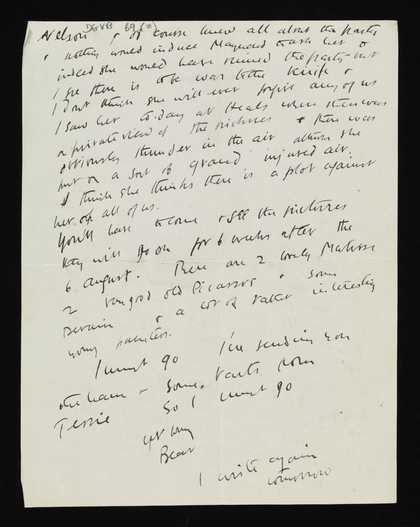 Nelson & of course knew all about the party
& nothing would induce Maynard to ask her &
indeed she would have ruined the party but
I see there is to be war to the knife &
I don't think she will ever forgive any of us
I saw her to-day at Heals when there was
a private view of the pictures & there was
obviously thunder in the air altho she
put on a sort of grand injured air.
I think she thinks there is a plot against
her of all of us.
You'll have to come & see the pictures
they will go on for 6 weeks after the
6 August. There are 2 lovely Matisse
2 very good old Picassos & some
Derain & a lot of rather interesting
young painters.
I must go I'm sending you
the ham & some tarts from
Jessie So I must go
yr
Bear
I write again
tomorrow